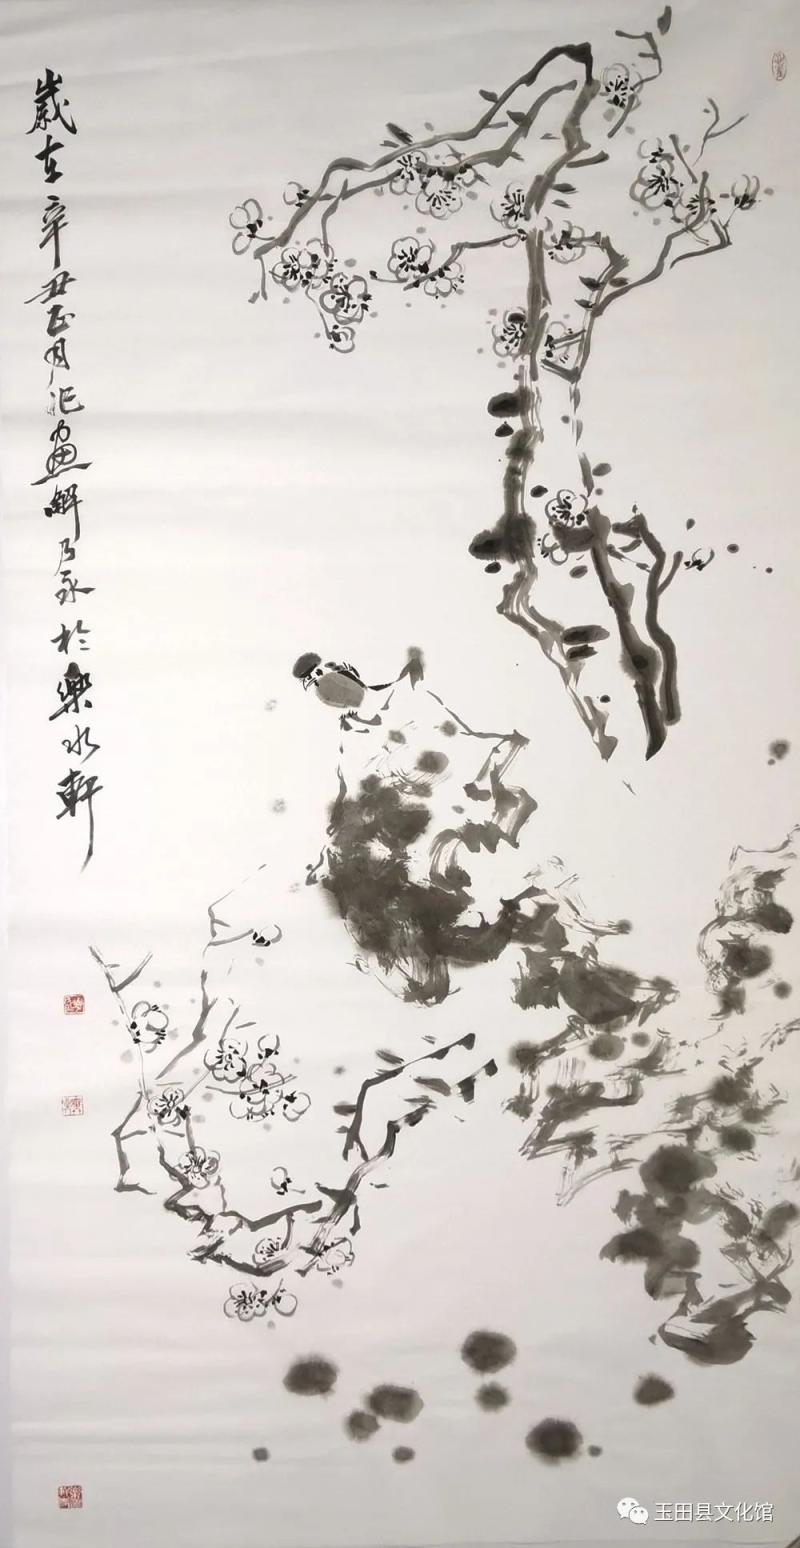 歲在辛丑正月記畫解乃永於樂水軒
玉田县文化馆